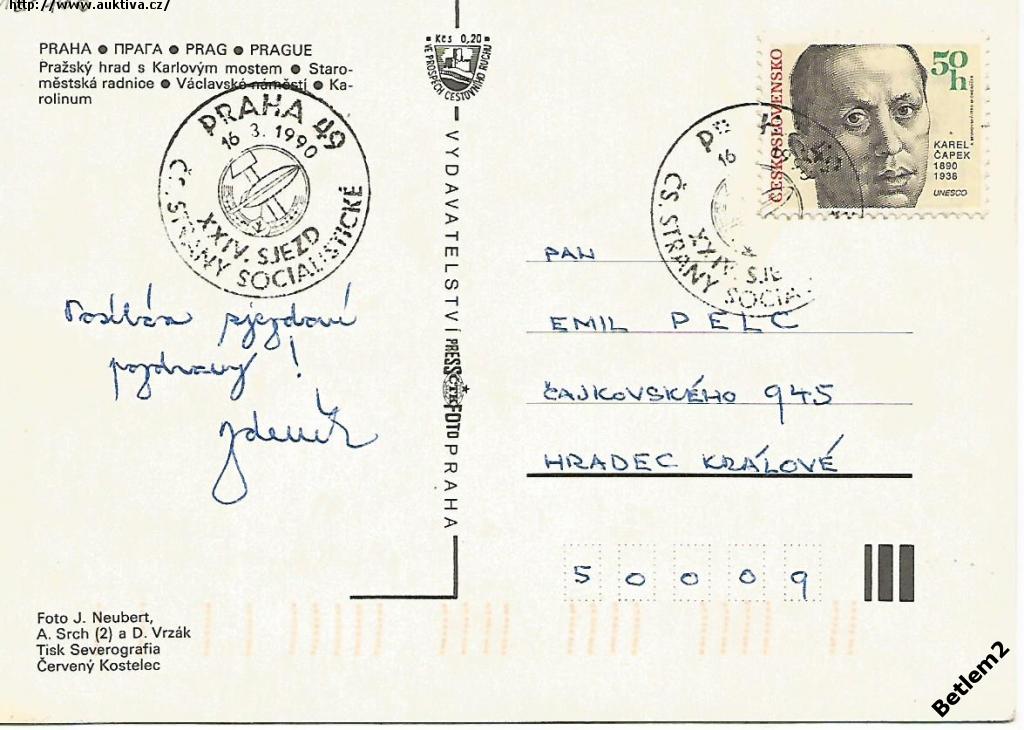 http://www.auktiva.cz/
PRAHA ● ПРАГА ● PRAG ● PRAGUE
Pražský hrad s Karlovým mostem ● Staro-
městská radnice ● Václavské náměstí ● Ka-
rolinum
PRAHA 49
16. 3. 1990
XXIV. SJEZD
ČS. STRANY SOCIALISTICKÉ
Posílám sjezdové
pozdravy!
Zdeněk
Kčs 0,20
VE PROSPĚCH CESTOVNÍHO RUCHU
VYDAVATELSTVÍ PRESSFOTO PRAHA
ČTK
ČESKOSLOVENSKO
50 h
KAREL
ČAPEK
1890
1938
UNESCO
16
XXIV. SJE
ČS. STRANY SOCIA
PAN
EMIL PELC
ČAJKOVSKÉHO 945
HRADEC KRÁLOVÉ
50009
Foto J. Neubert,
A. Srch (2) a D. Vrzák
Tisk Severografia
Červený Kostelec
Betlem2